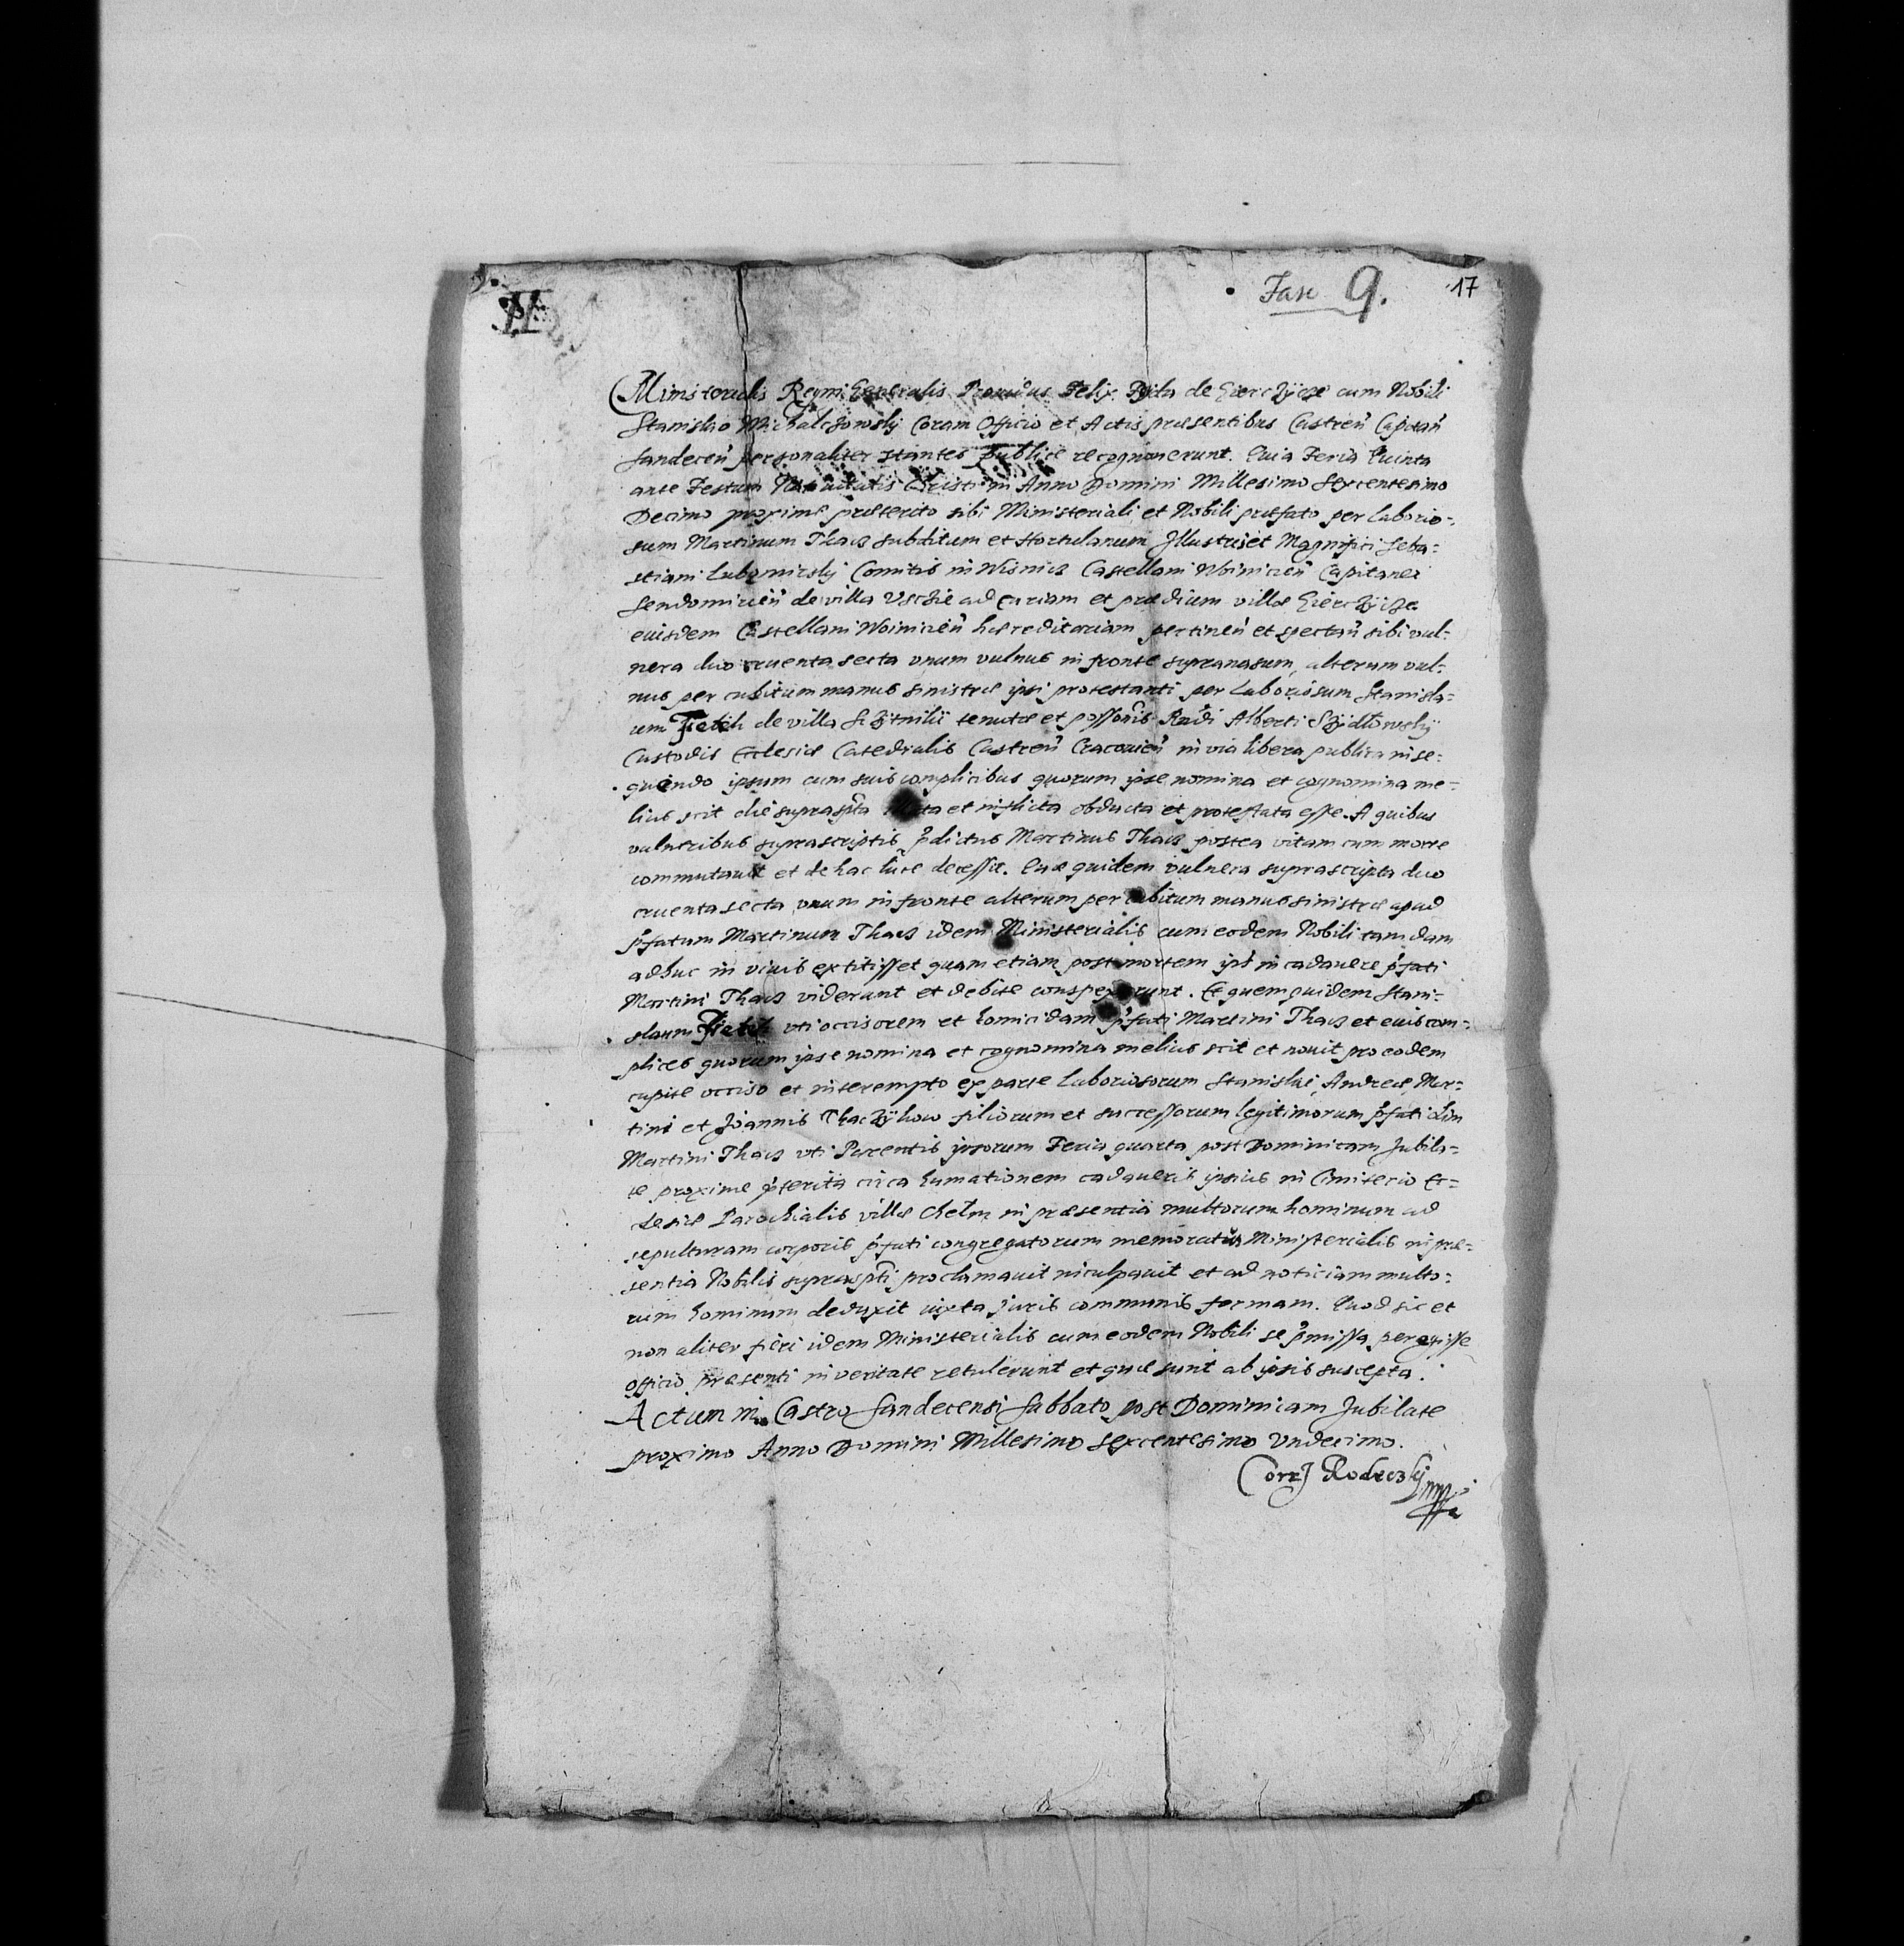 Fasc 9.
17
Ministerialis Regni Generalis Providus Felix Pyda de Gierczÿcze cum Nobili
Stanislao Michalczowskÿ Coram Officio et Actis præsentibus Castreñ Capitañ
Sandeceñ personaliter stantes publice recognouerunt. Quia Feria Quinta
ante Festum Natiuitatis Christi in Anno Domini Millesimo Sexcentesimo
Decimo proxime præterito sibi Ministeriali et Nobili præfato per Laborio-
sum Martinum Thacz subditum et Hortulanum Illustris et Magnifici Seba-
stiani Lubomirskÿ Comitis in Wisnicz Castellani Woinicieñ Capitanei
Sendomirieñ de villa Vsczie ad curiam et prædium villæ Gierczÿcze
eiusdem Castellani Woinicieñ hæreditariam pertineñ et spectañ sibi vul-
nera duo cruenta secta vnum vulnus in fronte supra nasum, alterum vul-
nus per cubitum manus sinistræ ipsi protestanti per Laboriosum Stanisla-
um Fietch de villa Sizÿtnikÿ tenutæ et possonis Rndi Alberti Szÿdlowskÿ
Custodis Ecclesiæ Catedralis Castreñ Cracouieñ in via libera publica inse-
quendo ipsum cum suis complicibus quorum ipse nomina et cognomina me-
lius scit die suprascpta et inflicta obducta et protestata esse. A quibus
vulneribus suprascriptis pdictus Martinus Thacz postea vitam cum morte
commutauit et de hac luce decessit. Quæ quidem vulnera suprascripta duo
cruenta secta vnum in fronte alterum per cubitum manus sinistræ apud
pfatum Martinum Thacz idem Ministerialis cum eodem Nobili tam dum
adhuc in viuis extitisset quam etiam post mortem ipsi in cadauere pfati
Martini Thacz viderunt et debite conspexerunt. Et quem quidem Stani-
slaum Fietch vti occisorem et homicidam pfati Martini Thacz et eius com-
plices quorum ipse nomina et cognomina melius scit et nouit pro eodem
capite occiso et interempto ex parte Laboriosorum Stanislai, Andreæ Mar-
tini et Joannis Thaczÿkow filiorum et successorum legitimorum pfati olim
Martini Thacz vti Parentis ipsorum Feria quarta post Dominicam Jubila-
te proxime pterita circa humationem cadaueris ipsius in Cimiterio Ec-
clesiæ Parochialis villæ Chełm in præsentia multorum hominum ad
sepulturam corporis pfati congregatorum memoratus Ministerialis in præ-
sentia Nobilis suprascpti proclamauit inculpauit et ad noticiam multo-
rum hominum deduxit iuxta juris communis formam. Quod sic et
non aliter fieri idem Ministerialis cum eodem Nobili se pmissa peregisse
officio præsenti in veritate retulerunt et quæ sunt ab ipsis suscepta.
Actum in Castro Sandecensi Sabbato post Dominicam Jubilate
proximo Anno Domini Millesimo Sexcentesimo Vndecimo.
Corrz Rodeczkj mpp